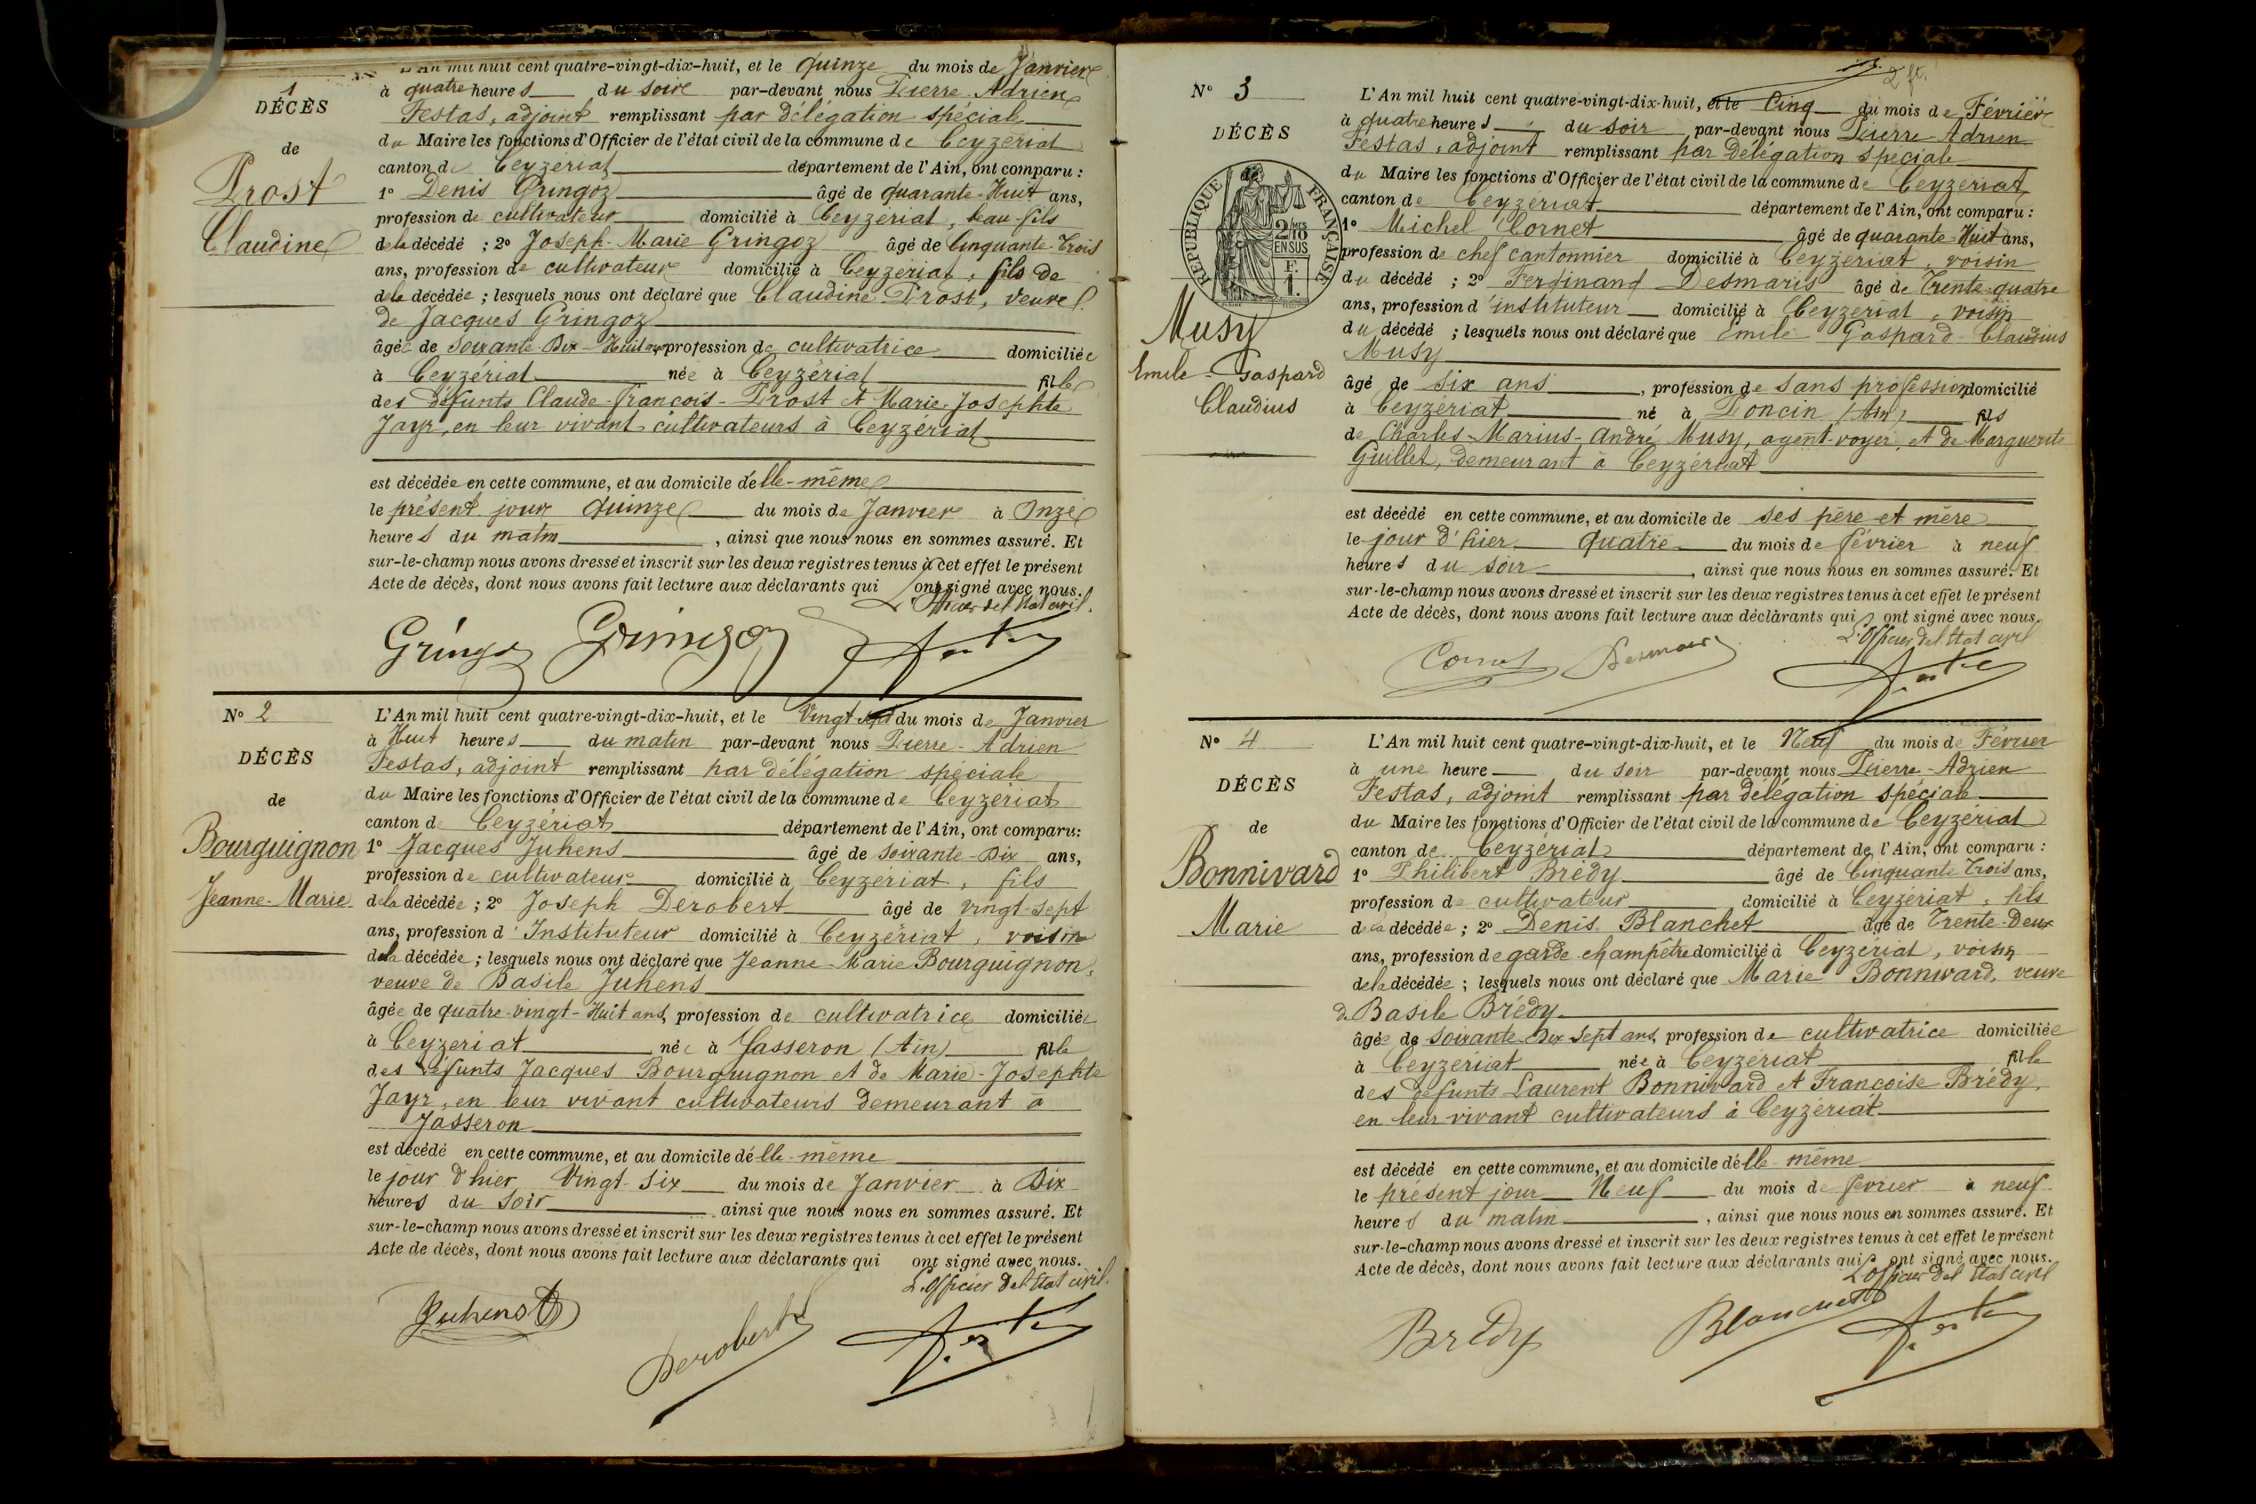 1
DÉCÈS
de
Prost
Claudine
L'An mil huit cent quatre-vingt-dix-huit, et le quinze du mois de Janvier
à quatre heures du soir par-devant nous Pierre-Adrien
Festas, adjoint remplissant par délégation spéciale
du Maire les fonctions d'Officier de l'état civil de la commune de Ceyzériat
canton de Ceyzériat département de l'Ain, ont comparu :
1º Denis Gringoz âgé de quarante-Huit ans,
profession de cultivateur domicilié à Ceyzériat, beau-fils
de la décédé ; 2º Joseph-Marie Gringoz âgé de Cinquante-Trois
ans, profession de cultivateur domicilié à Ceyzériat, fils de
de la décédée ; lesquels nous ont déclaré que Claudine Prost, veuve
de Jacques Gringoz
âgée de soixante-Dix-Huit ans profession de cultivatrice domiciliée
à Ceyzériat née à Ceyzériat fille
des défunts Claude-François-Prost et Marie-Josephte
Jayr, en leur vivant cultivateurs à Ceyzériat
est décédée en cette commune, et au domicile d'elle-même
le présent jour quinze du mois de Janvier à Onze
heures du matin, ainsi que nous nous en sommes assuré. Et
sur-le-champ nous avons dressé et inscrit sur les deux registres tenus à cet effet le présent
Acte de décès, dont nous avons fait lecture aux déclarants qui ont signé avec nous.
L'Officier de l'Etat civil.
Gringoz Gringoz Festas
Nº 2
DÉCÈS
de
Bourguignon
Jeanne-Marie
L'An mil huit cent quatre-vingt-dix-huit, et le Vingt-sept du mois de Janvier
à Huit heures du matin par-devant nous Pierre-Adrien
Festas, adjoint remplissant par délégation spéciale
du Maire les fonctions d'Officier de l'état civil de la commune de Ceyzériat
canton de Ceyzériat département de l'Ain, ont comparu :
1º Jacques Juhens âgé de soixante-Dix ans,
profession de cultivateur domicilié à Ceyzériat, fils
de la décédée ; 2º Joseph Derobert âgé de vingt-sept
ans, profession d'Instituteur domicilié à Ceyzériat, voisin
de la décédée ; lesquels nous ont déclaré que Jeanne-Marie Bourguignon,
veuve de Basile Juhens
âgée de quatre-vingt-Huit ans, profession de cultivatrice domiciliée
à Ceyzeriat née à Jasseron (Ain) fille
des défunts Jacques Bourguignon et de Marie-Josephte
Jayr, en leur vivant cultivateurs demeurant à
Jasseron
est décédé en cette commune, et au domicile d'elle-même
le jour d'hier Vingt-Six du mois de Janvier à Dix
heures du soir ainsi que nous nous en sommes assuré. Et
sur-le-champ nous avons dressé et inscrit sur les deux registres tenus à cet effet le présent
Acte de décès, dont nous avons fait lecture aux déclarants qui ont signé avec nous.
L'Officier de l'Etat civil.
Juhens Derobert Festas
Nº 3
DÉCÈS
RÉPUBLIQUE FRANÇAISE
2/10
EN SUS
F.
1.
Musy
Emile-Gaspard
Claudius
L'An mil huit cent quatre-vingt-dix-huit, et le Cinq du mois de Février
à quatre heures du soir par-devant nous Pierre-Adrien
Festas, adjoint remplissant par Délégation spéciale
du Maire les fonctions d'Officier de l'état civil de la commune de Ceyzériat
canton de Ceyzériat département de l'Ain, ont comparu :
1º Michel Cornet âgé de quarante-Huit ans,
profession de chef cantonnier domicilié à Ceyzériat, voisin
du décédé ; 2º Ferdinand Desmaris âgé de Trente-quatre
ans, profession d'instituteur domicilié à Ceyzériat, voisin
du décédé ; lesquels nous ont déclaré que Emile Gaspard-Claudius
Musy
âgé de six ans, profession de sans profession domicilié
à Ceyzériat né à Poncin (Ain) fils
de Charles-Marius-André Musy, agent-voyer, et de Marguerite
Guillet, demeurant à Ceyzériat
est décédé en cette commune, et au domicile de ses père et mère
le jour d'hier quatre du mois de février à neuf
heures du soir, ainsi que nous nous en sommes assuré. Et
sur-le-champ nous avons dressé et inscrit sur les deux registres tenus à cet effet le présent
Acte de décès, dont nous avons fait lecture aux déclarants qui ont signé avec nous.
L'Officier de l'Etat civil
Cornet Desmaris Festas
Nº 4
DÉCÈS
de
Bonnivard
Marie
L'An mil huit cent quatre-vingt-dix-huit, et le Neuf du mois de Février
à une heure du soir par-devant nous Pierre-Adrien
Festas, adjoint remplissant par délégation spéciale
du Maire les fonctions d'Officier de l'état civil de la commune de Ceyzériat
canton de Ceyzériat département de l'Ain, ont comparu :
1º Philibert Brédy âgé de Cinquante-Trois ans,
profession de cultivateur domicilié à Ceyzériat, fils
de la décédée ; 2º Denis Blanchet âgé de Trente-Deux
ans, profession de garde-champêtre domicilié à Ceyzériat, voisin
de la décédée ; lesquels nous ont déclaré que Marie Bonnivard, veuve
de Basile Brédy
âgée de soixante-Dix-Sept ans, profession de cultivatrice domiciliée
à Ceyzériat née à Ceyzériat fille
des défunts Laurent Bonnivard et Françoise Brédy,
en leur vivant cultivateurs à Ceyzériat
est décédé en cette commune, et au domicile d'elle-même
le présent jour Neuf du mois de février à neuf
heures du matin, ainsi que nous nous en sommes assuré. Et
sur-le-champ nous avons dressé et inscrit sur les deux registres tenus à cet effet le présent
Acte de décès, dont nous avons fait lecture aux déclarants qui ont signé avec nous.
L'Officier de l'Etat civil
Brédy Blanchet Festas